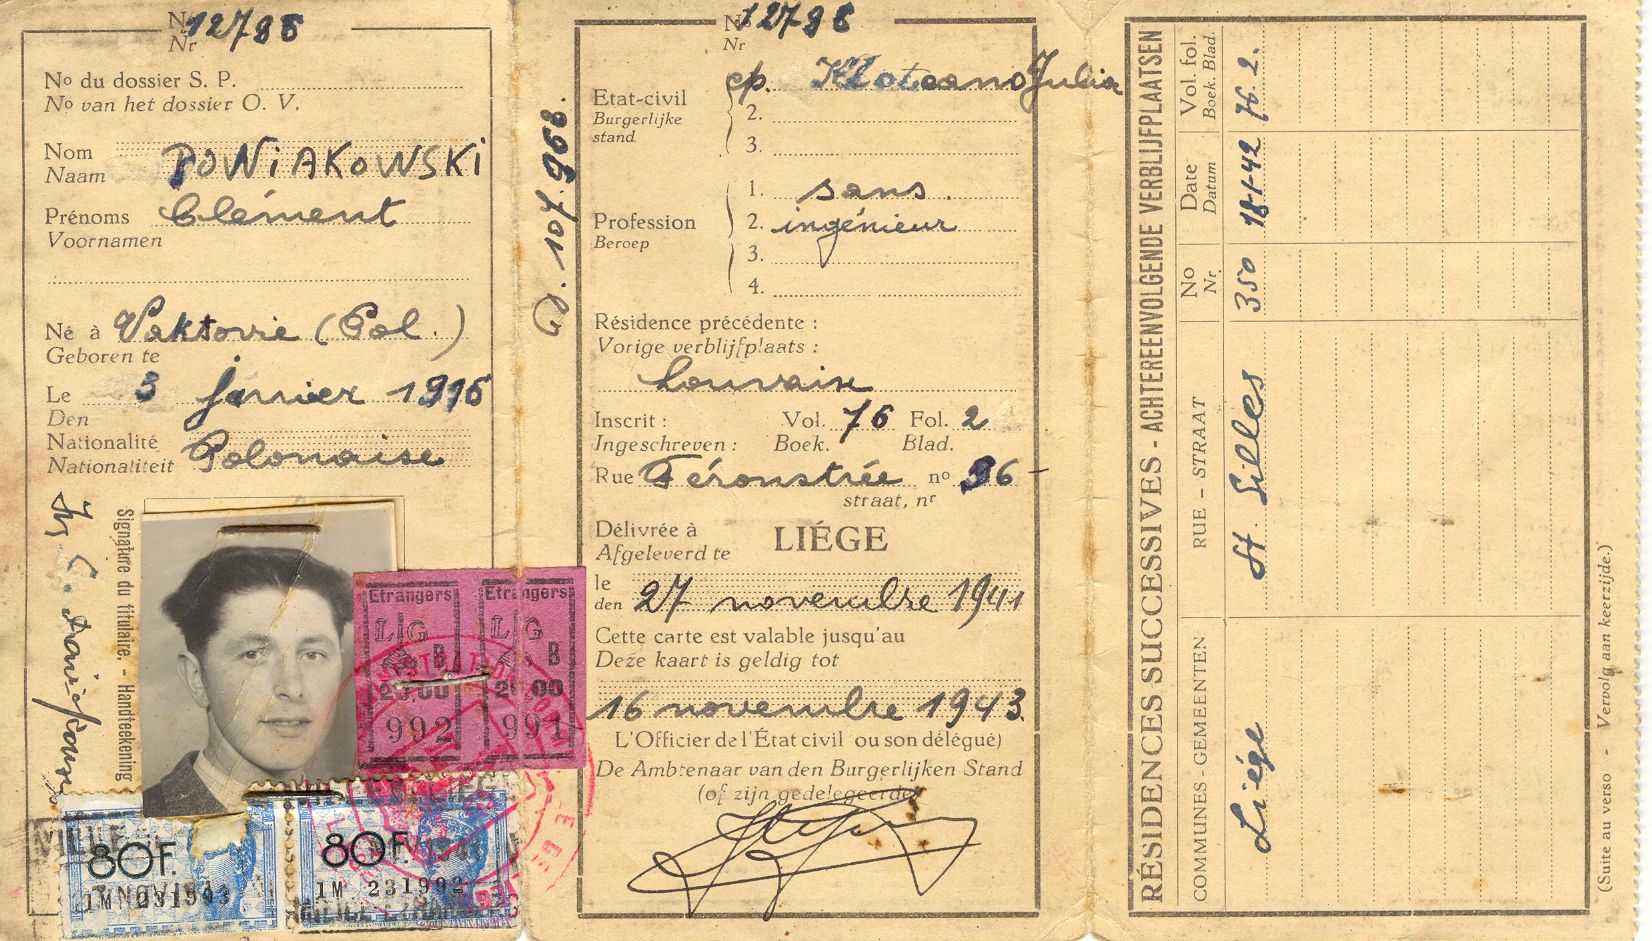 No 12798
Nr
No du dossier S. P.
No van het dossier O. V.
Nom
Naam
POWiAKOWSKi
Prénoms Clément
Voornamen
Né à (Pol.)
Geboren te
Le 3 janvier 1916
Den
Nationalité
Nationaliteit Polonaise
Signature du titulaire. - Handtekening
Etrangers Etrangers
LG LG
B B
20 00 20 00
992 991
80F. 80F.
No 12798
Nr
107.968.
Etat-civil
Burgerlijke
stand
ép. Julia
2.
3.
Profession
Beroep
1. sans.
2. ingénieur
3.
4.
Résidence précédente :
Vorige verblijfplaats :
Louvain
Inscrit : Vol. 76 Fol. 2
Ingeschreven : Boek. Blad.
Rue Féronstrée no 96 -
straat, nr
Délivrée à
Afgeleverd te LIÉGE
le
den 27 novembre 1941
Cette carte est valable jusqu'au
Deze kaart is geldig tot
16 novembre 1943.
L'Officier de l'État civil (ou son délégué)
De Ambtenaar van den Burgerlijken Stand
(of zijn gedelegeerde)
RÉSIDENCES SUCCESSIVES - ACHTEREENVOLGENDE VERBLIJFPLAATSEN
COMMUNES - GEMEENTEN RUE - STRAAT No Nr. Date Datum Vol. fol. Boek. Blad.
Liége St. Gilles 350 18-1-42 76 2.
(Suite au verso - Vervolg aan keerzijde.)